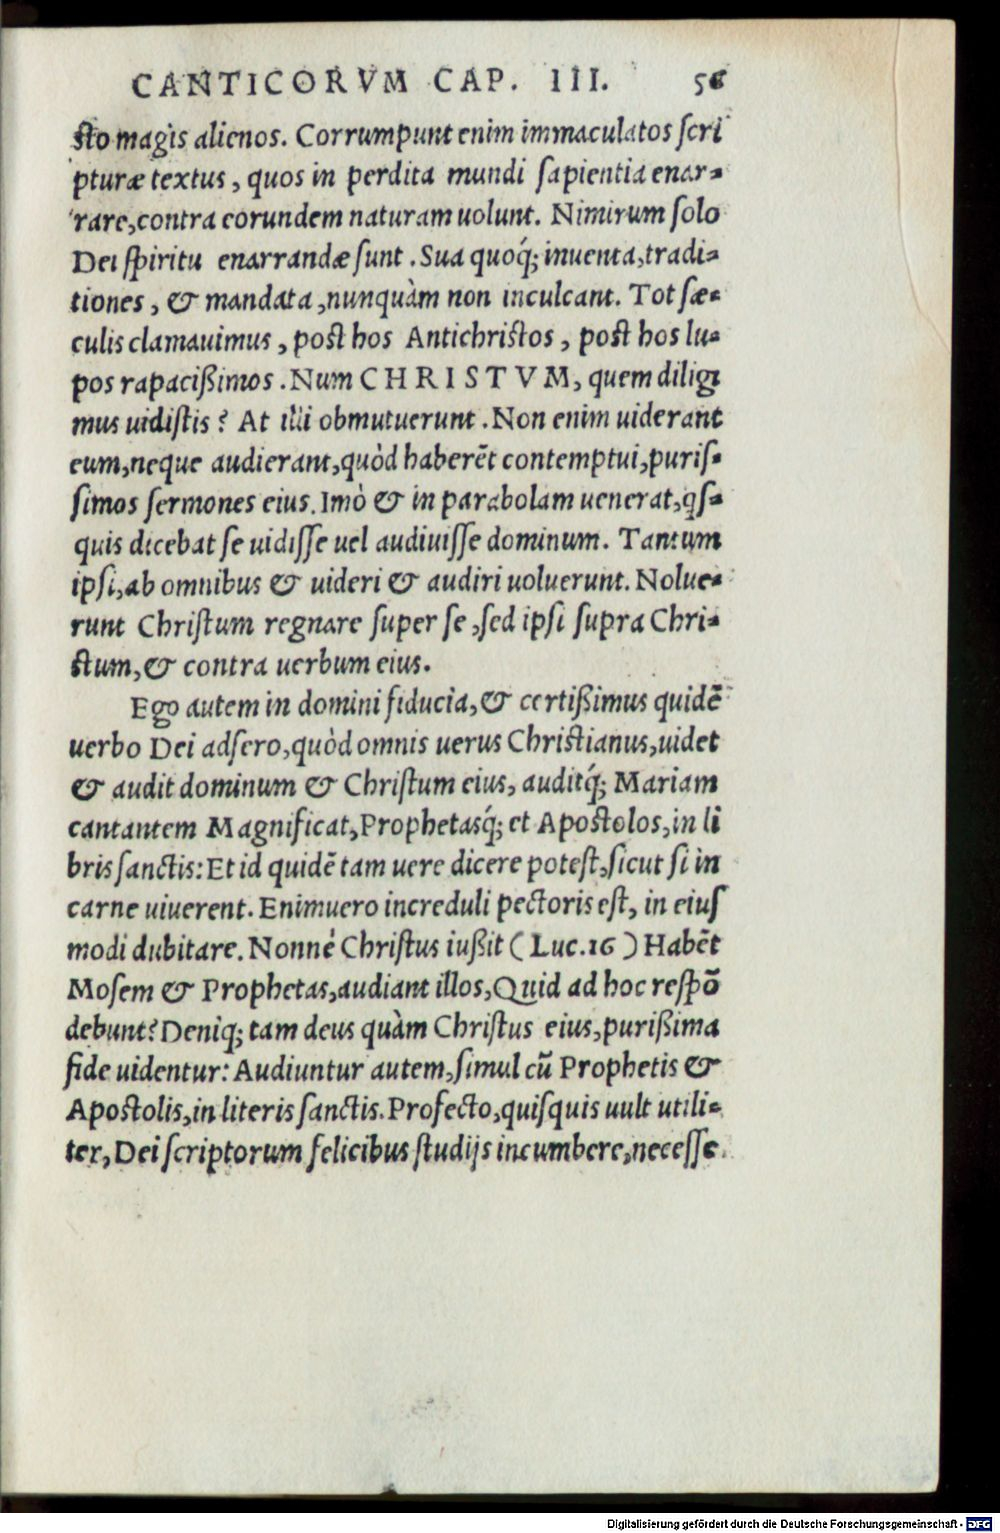 CANTICORVM CAP. III. 56
sto magis alienos. Corrumpunt enim immaculatos scri
pturæ textus, quos in perdita mundi sapientia enar-
rare, contra eorundem naturam uolunt. Nimirum solo
Dei spiritu enarrandæ sunt. Sua quoq́; inuenta, tradi-
tiones, & mandata, nunquàm non inculcant. Tot sæ-
culis clamauimus, post hos Antichristos, post hos lu-
pos rapacißimos. Num CHRISTVM, quem diligi
mus uidistis? At illi obmutuerunt. Non enim uiderant
eum, neque audierant, quòd haberēt contemptui, puris-
simos sermones eius. Imò & in parabolam uenerat, qs-
quis dicebat se uidisse uel audiuisse dominum. Tantum
ipsi, ab omnibus & uideri & audiri uoluerunt. Nolue-
runt Christum regnare super se, sed ipsi supra Chri-
stum, & contra uerbum eius.
Ego autem in domini fiducia, & certißimus quidē
uerbo Dei adsero, quòd omnis uerus Christianus, uidet
& audit dominum & Christum eius, auditq́; Mariam
cantantem Magnificat, Prophetasq́; et Apostolos, in li
bris sanctis: Et id quidē tam uere dicere potest, sicut si in
carne uiuerent. Enimuero increduli pectoris est, in eius
modi dubitare. Nonné Christus iußit (Luc. 16) Habēt
Mosem & Prophetas, audiant illos, Quid ad hoc respō
debunt? Deniq; tam deus quàm Christus eius, purißima
fide uidentur: Audiuntur autem, simul cū Prophetis &
Apostolis, in literis sanctis. Profecto, quisquis uult utili-
ter, Dei scriptorum felicibus studijs incumbere, necesse
Digitalisierung gefördert durch die Deutsche Forschungsgemeinschaft - DFG